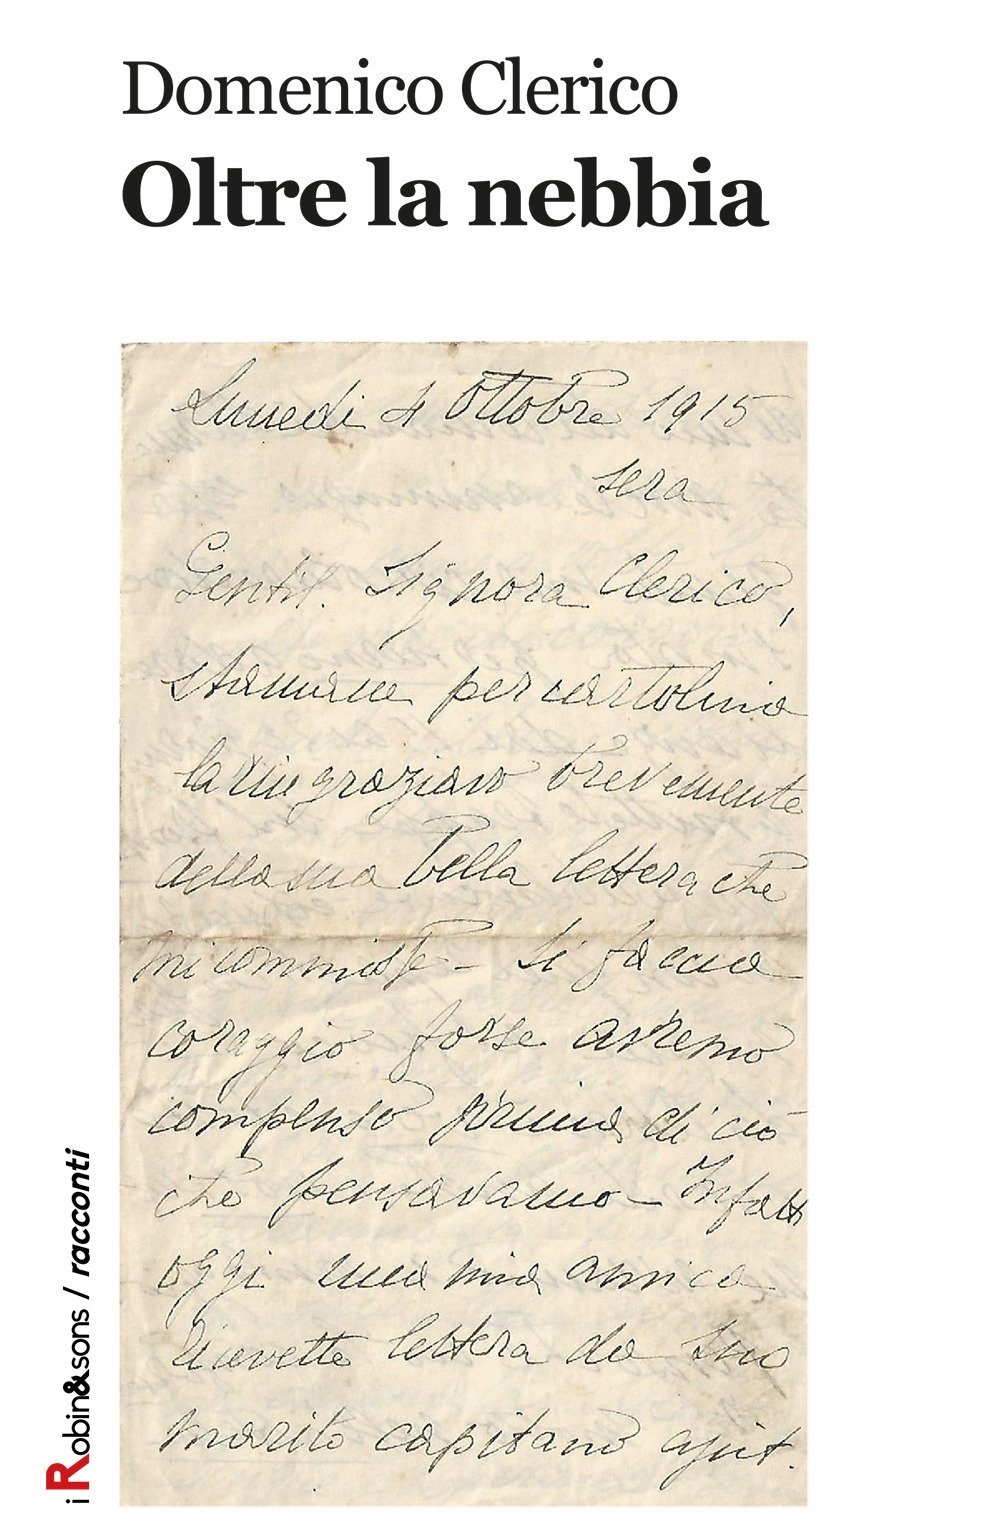 Domenico Clerico
Oltre la nebbia
Lunedi 4 Ottobre 1915
sera
Gentil. Signora Clerico,
stamane per cartolina
la ringraziavo brevemente
della sua bella lettera che
mi commosse – Si faccia
coraggio forse avremo
compenso prima di ciò
che pensavamo – Infatti
oggi una mia amica
ricevette lettera da suo
marito capitano ajut.
i Robin&sons / racconti